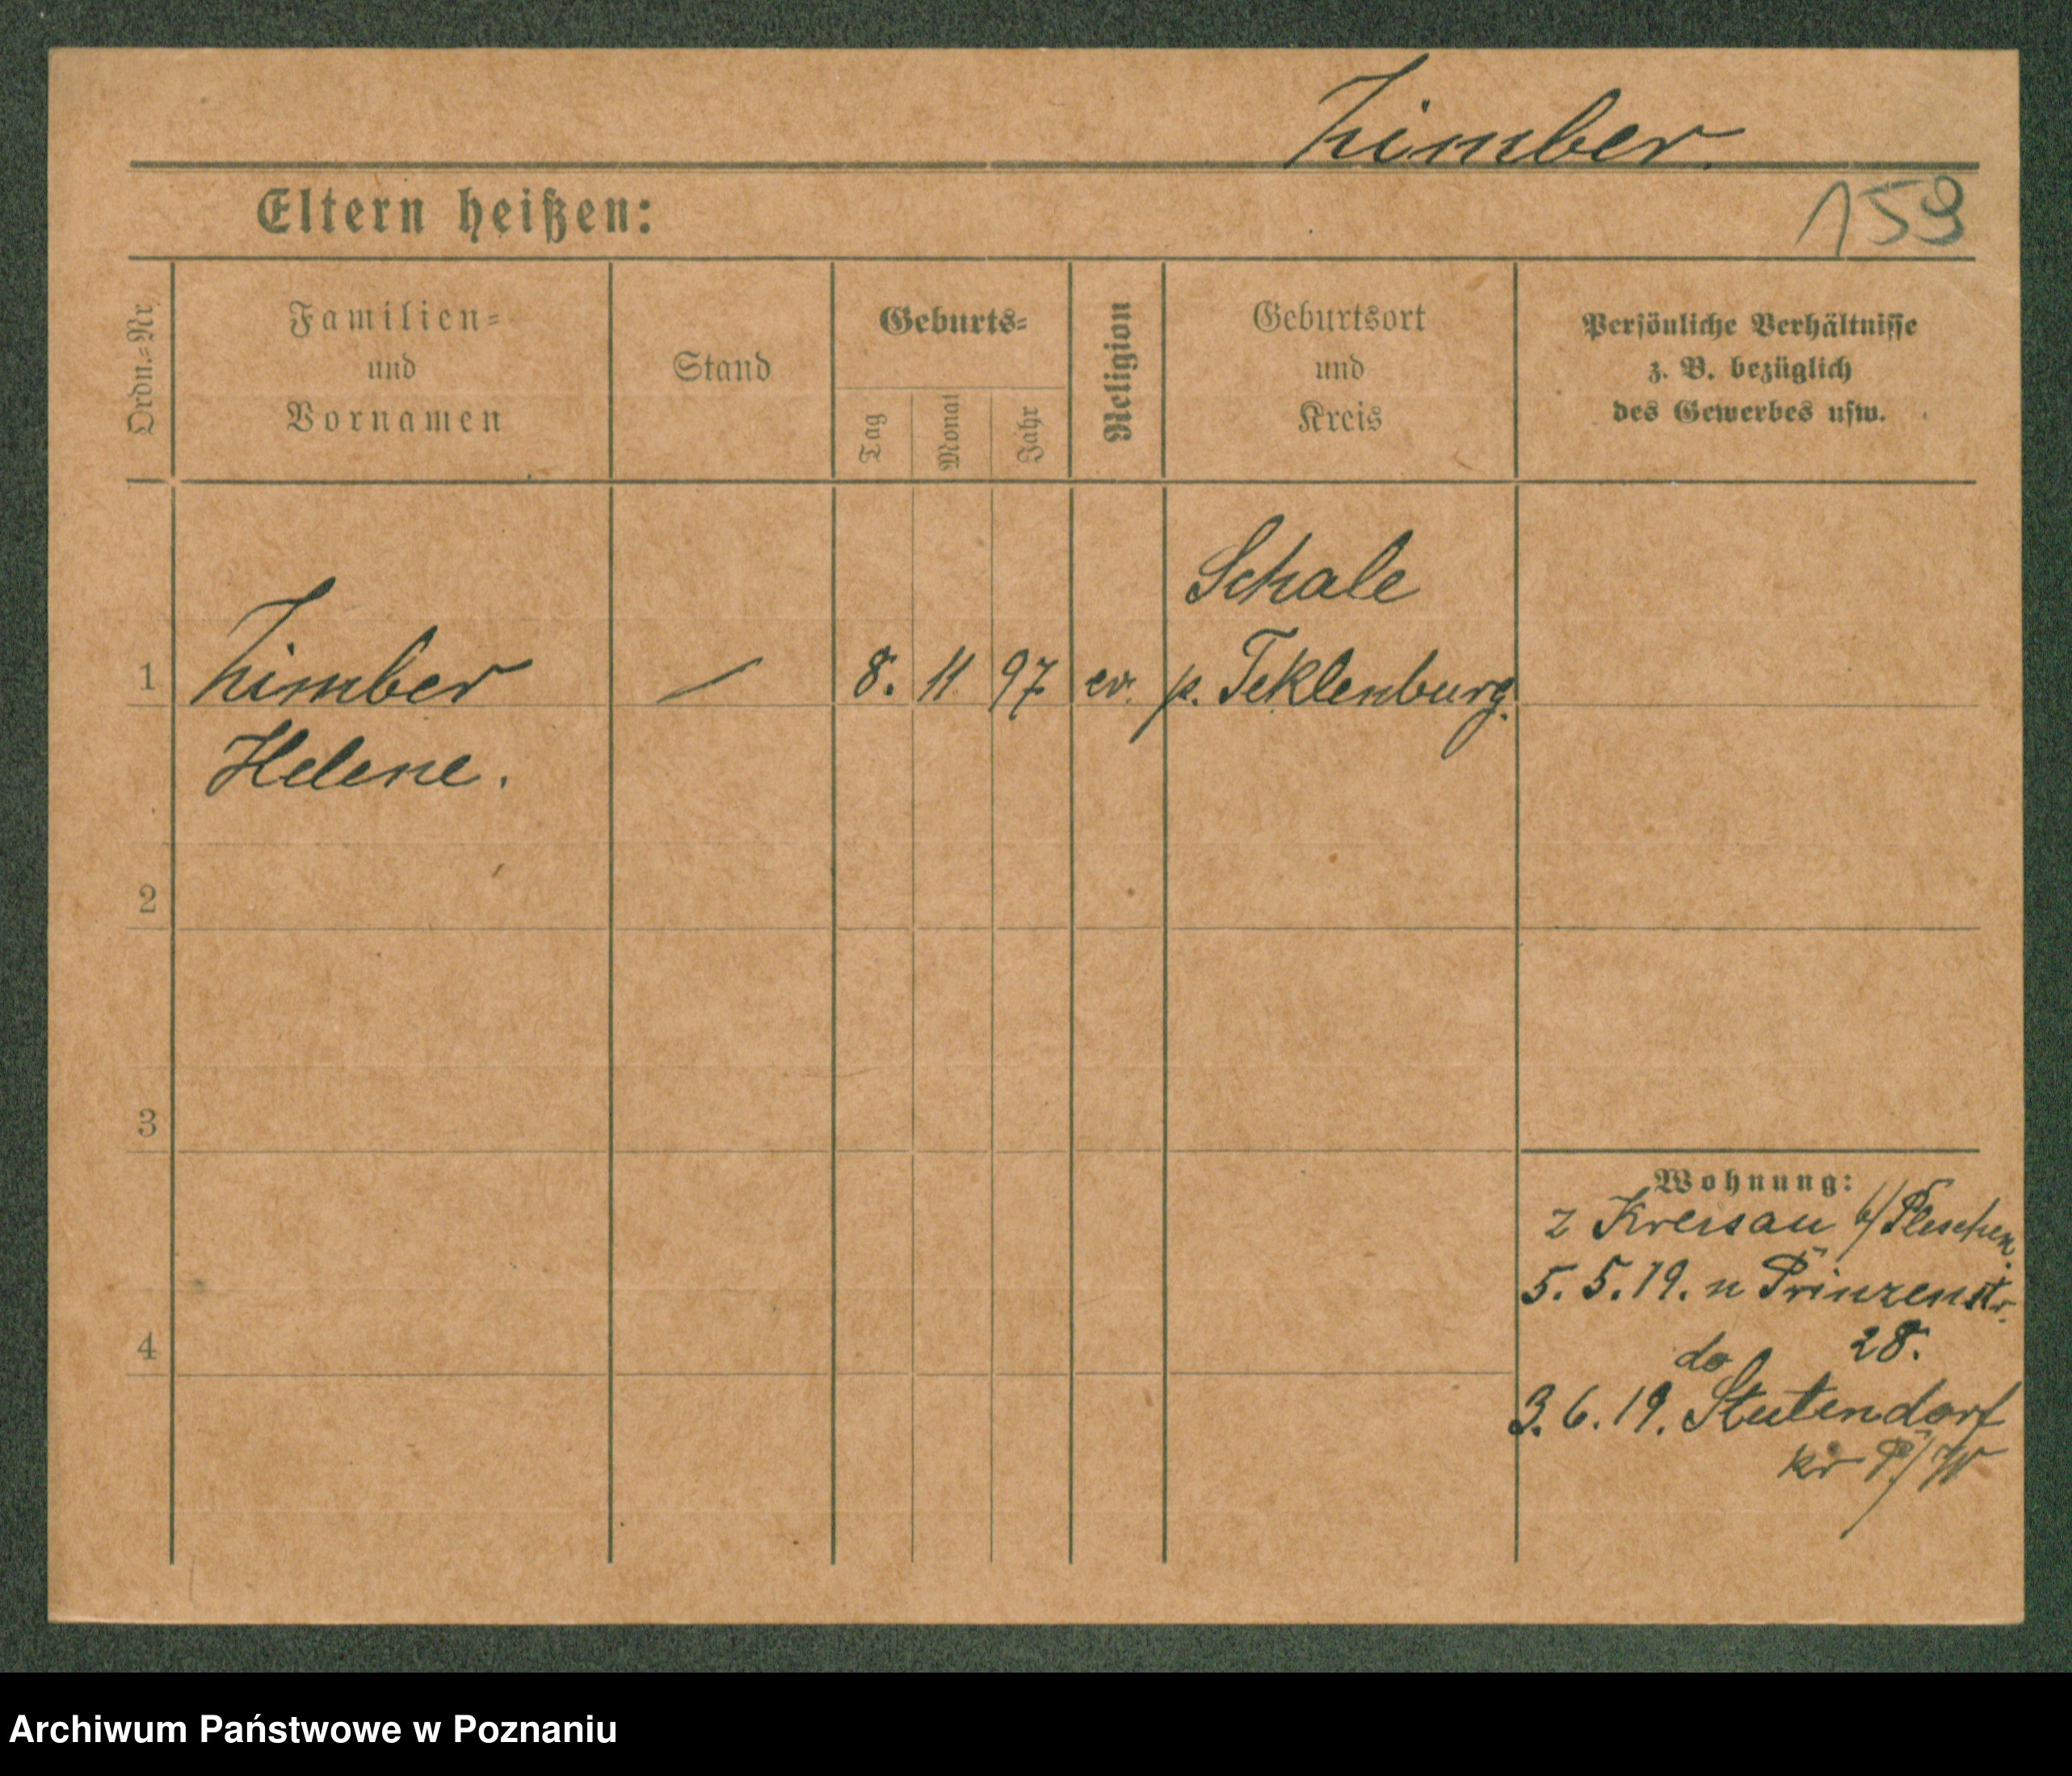 Zimber.
159
Eltern heißen:
Ordn.=Nr.
Familien=
und
Vornamen
Stand
Geburts=
Tag
Monat
Jahr
Religion
Geburtsort
und
Kreis
Persönliche Verhältnisse
z. B. bezüglich
des Gewerbes usw.
Schale
1 Zimber — 8. 11 97 ev. p. Teklenburg.
Helene.
2
3
4
Wohnung:
z Kreisau b/Pleschen.
5. 5. 19. n Prinzenstr.
28.
do
3. 6. 19. Stutendorf
kr P/W
Archiwum Państwowe w Poznaniu